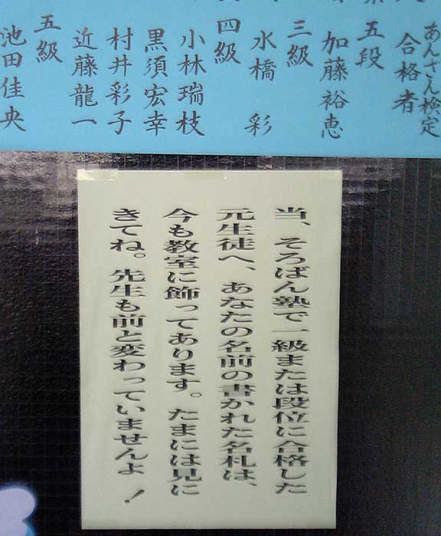 あんざん検定
合格者
五段
加藤裕恵
三級
水橋 彩
四級
小林瑞枝
黒須宏幸
村井彩子
近藤龍一
五級
池田佳央
当、そろばん塾で一級または段位に合格した
元生徒へ、あなたの名前の書かれた名札は、
今も教室に飾ってあります。たまには見に
きてね。先生も前と変わっていませんよ!